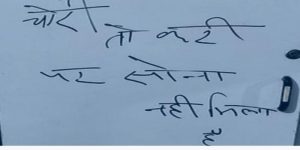 चोरी तो करी
पर सोना
नही मिला
है